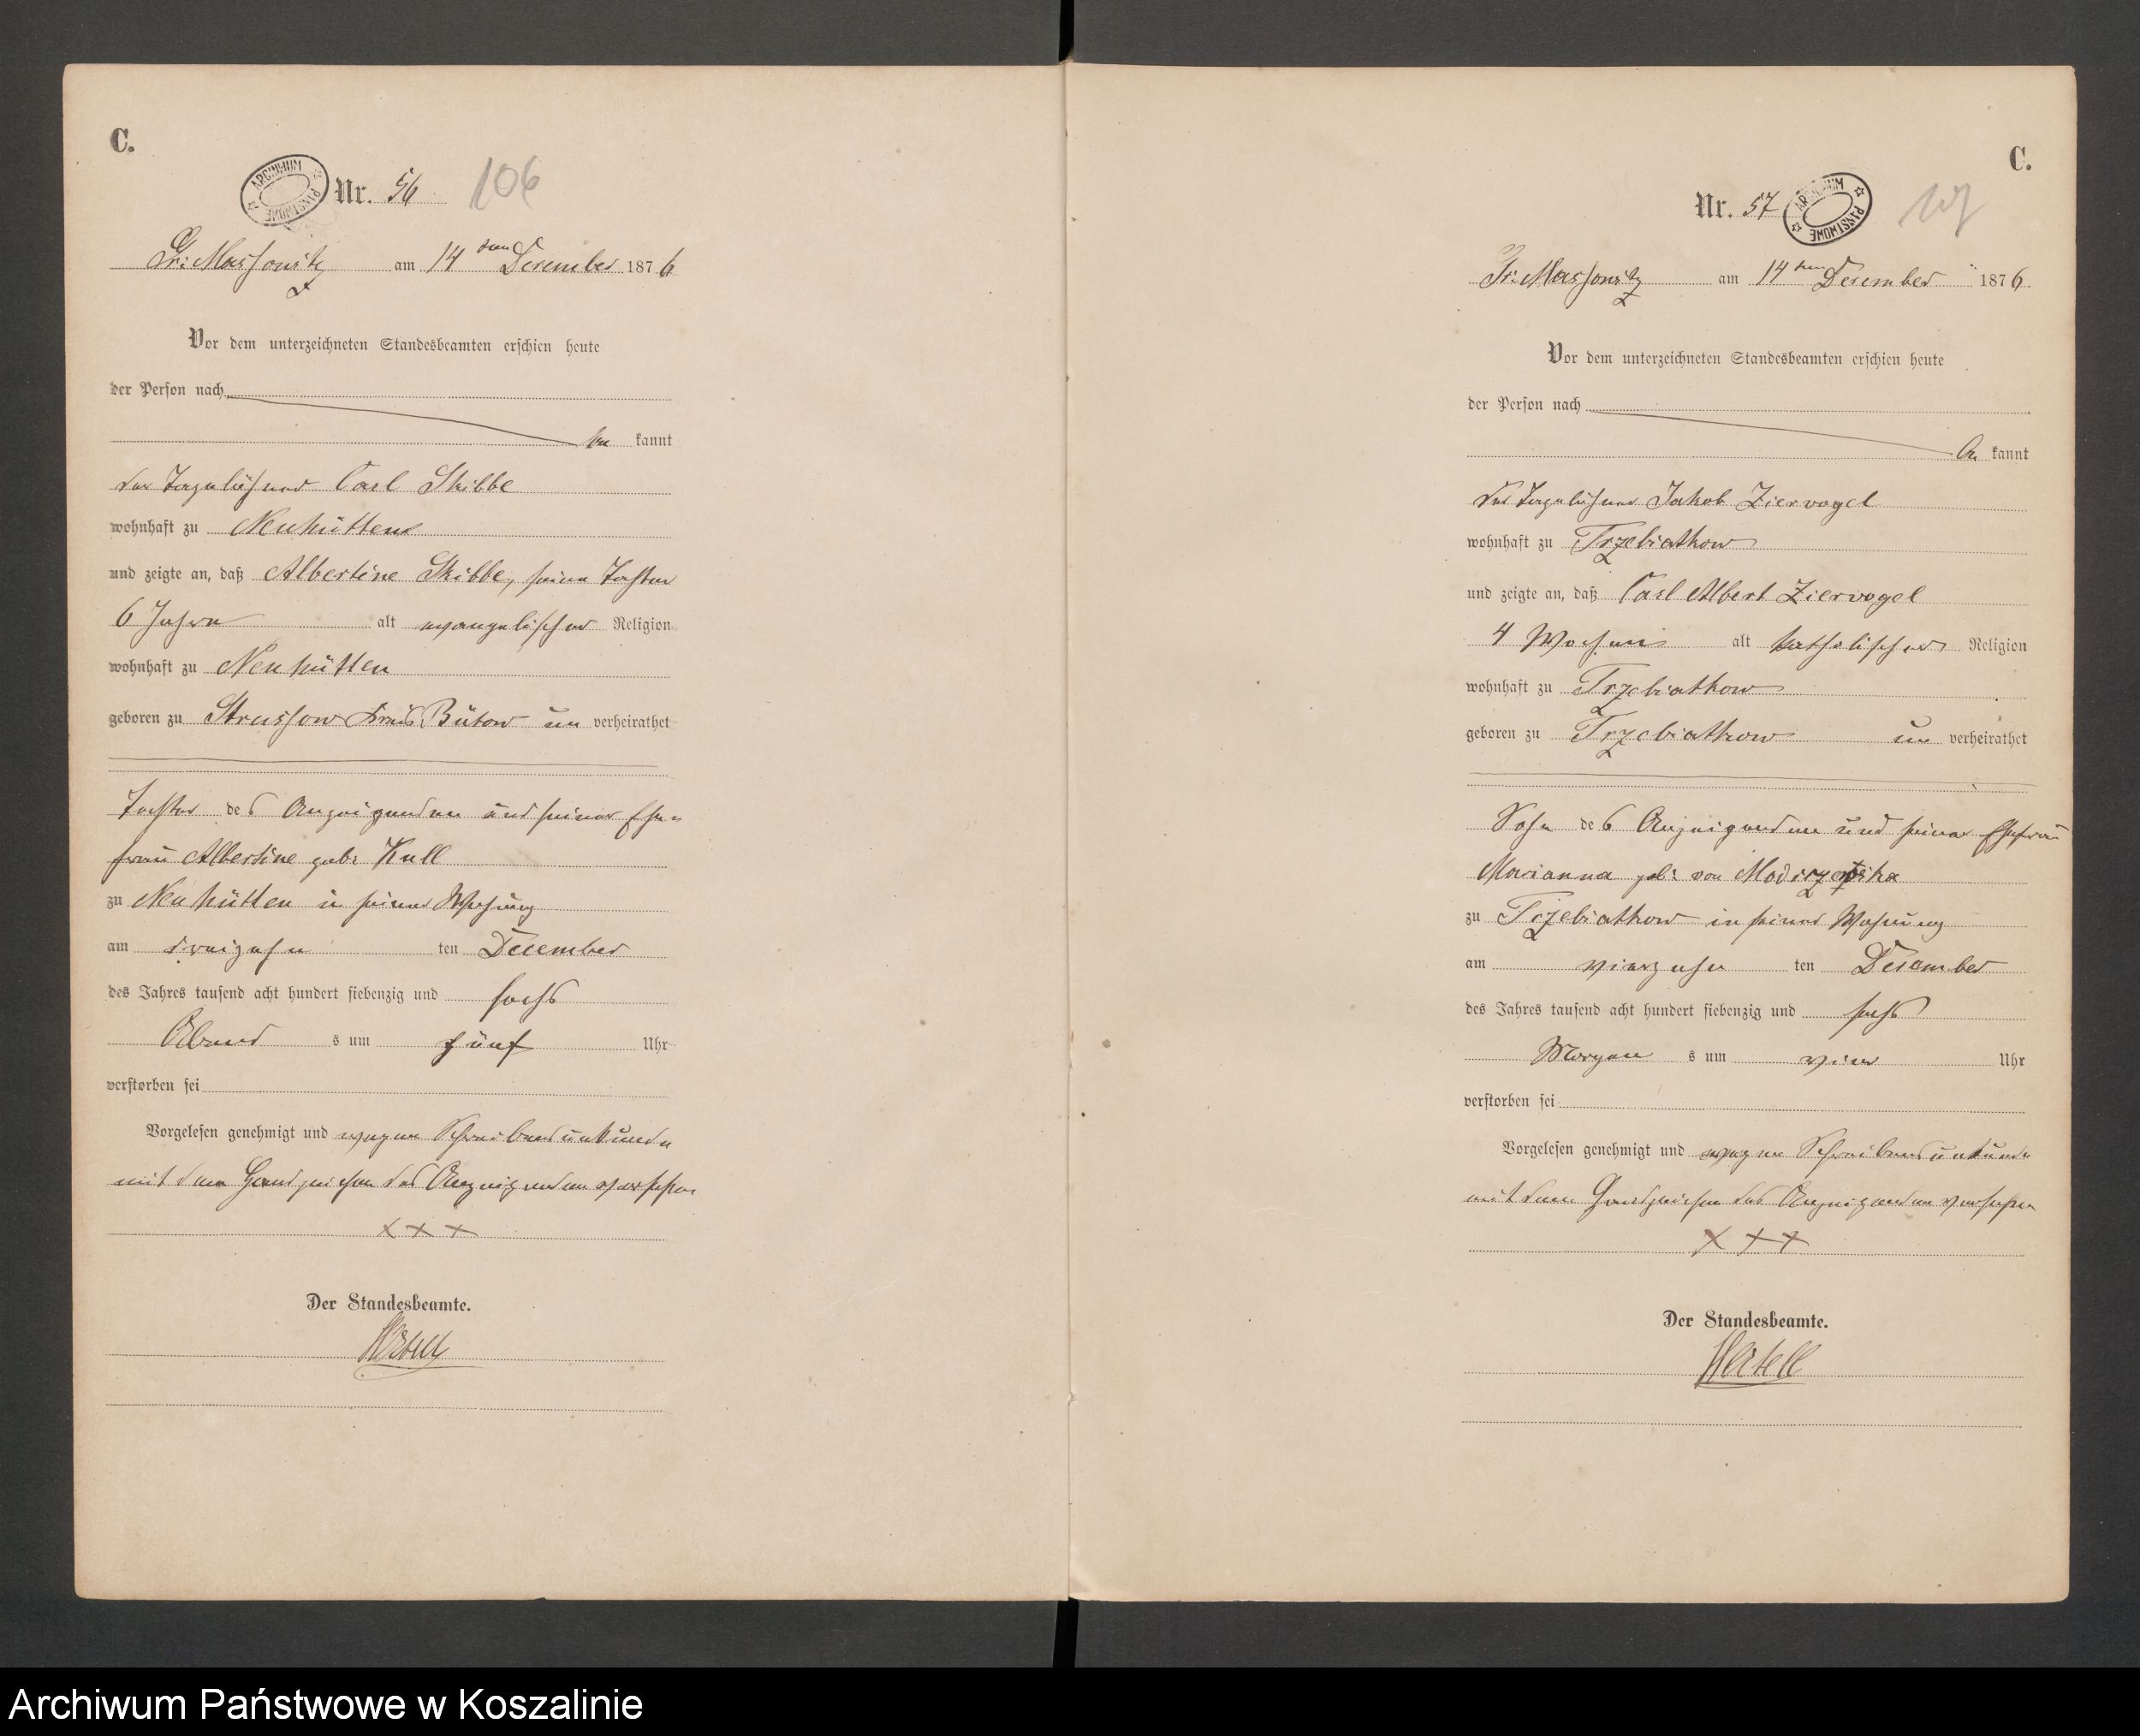 C.
ARCHIWUM PAŃSTWOWE
Nr. 56 106
Gr: Massowitz am 14 ten December 1876
Vor dem unterzeichneten Standesbeamten erschien heute
der Person nach
be kannt
der Tagelöhner Carl Skibbe
wohnhaft zu Neuhütten
und zeigte an, daß Albertine Skibbe, seine Tochter
6 Jahre alt evangelischer Religion
wohnhaft zu Neuhütten
geboren zu Strussow Kreis Bütow un verheirathet
Tochter des Anzeigenden und seiner Ehe-
frau Albertine geb: Kull
zu Neuhütten in seiner Wohnung
am dreizehn ten December
des Jahres tausend acht hundert siebenzig und sechs
Abend s um fünf Uhr
verstorben sei
Vorgelesen genehmigt und wegen Schreibensunkunde
mit dem Handzeichen des Anzeigenden versehen
+++
Der Standesbeamte.
Hertell
C.
Nr. 57 ARCHIWUM PAŃSTWOWE 107
Gr: Massowitz am 14 ten December 1876
Vor dem unterzeichneten Standesbeamten erschien heute
der Person nach
be kannt
der Tagelöhner Jakob Ziervogel
wohnhaft zu Trzebiatkow
und zeigte an, daß Carl Albert Ziervogel
4 Wochen alt katholischer Religion
wohnhaft zu Trzebiatkow
geboren zu Trzebiatkow un verheirathet
Sohn des Anzeigenden und seiner Ehefrau
Marianna geb: von
zu Trzebiatkow in seiner Wohnung
am vierzehn ten December
des Jahres tausend acht hundert siebenzig und sechs
Morgen s um vier Uhr
verstorben sei
Vorgelesen genehmigt und wegen Schreibensunkunde
mit dem Handzeichen des Anzeigenden versehen
+++
Der Standesbeamte.
Hertell
Archiwum Państwowe w Koszalinie